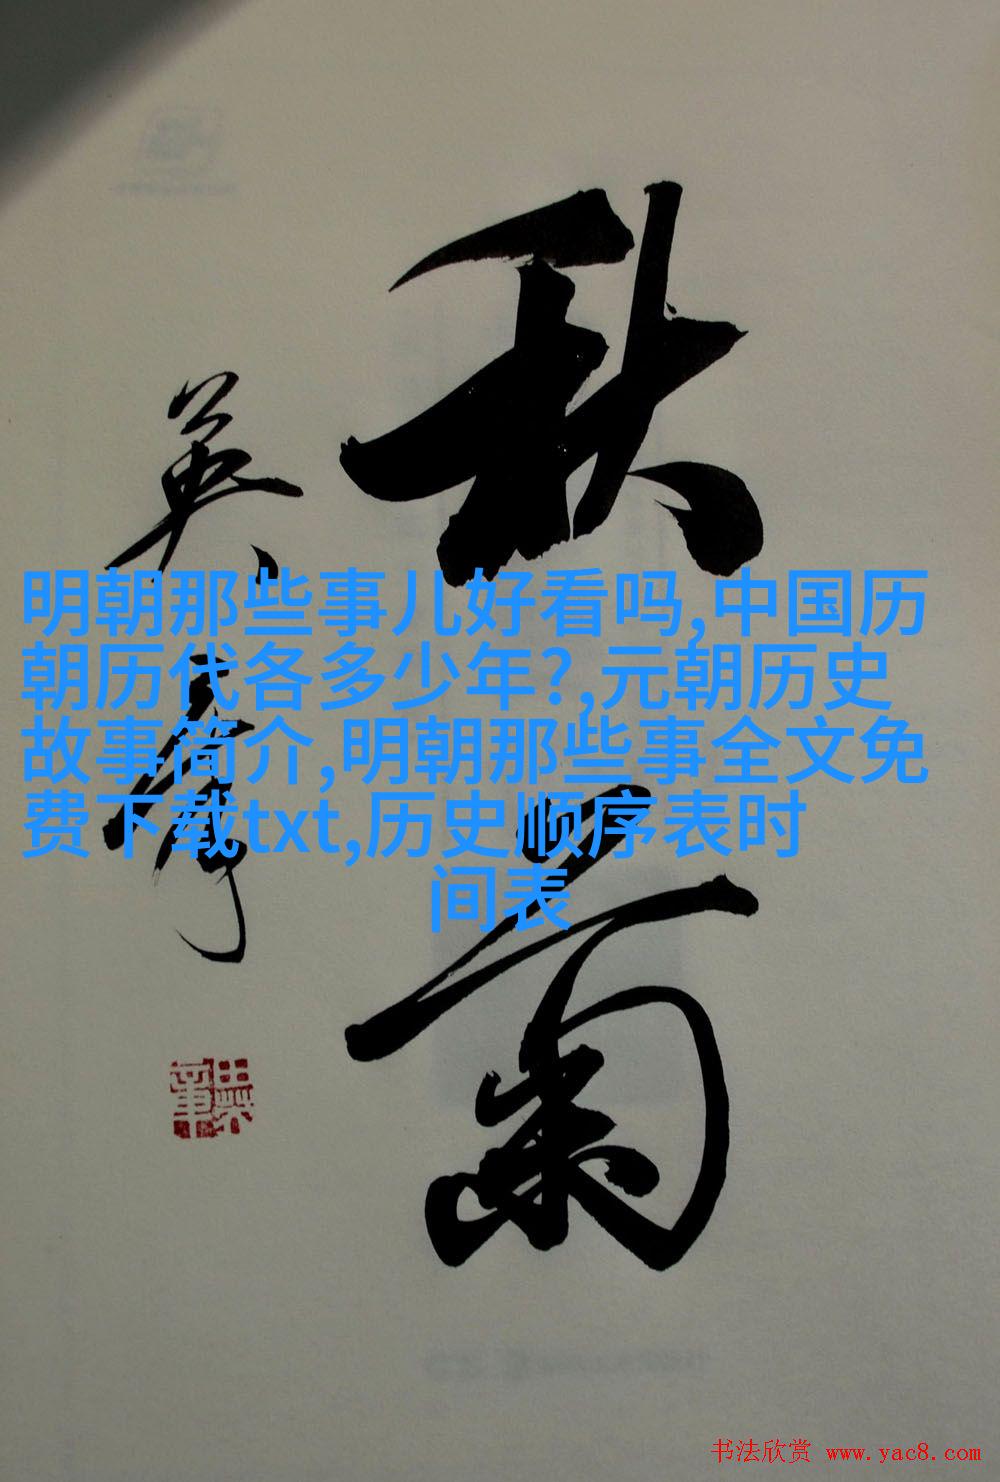 秋菊
英章
明朝那些事儿好看吗,中国历
朝历代各多少年?,元朝历史
故事简介,明朝那些事全文免
费下载txt,历史顺序表时
间表
书法欣赏 www.yac8.com